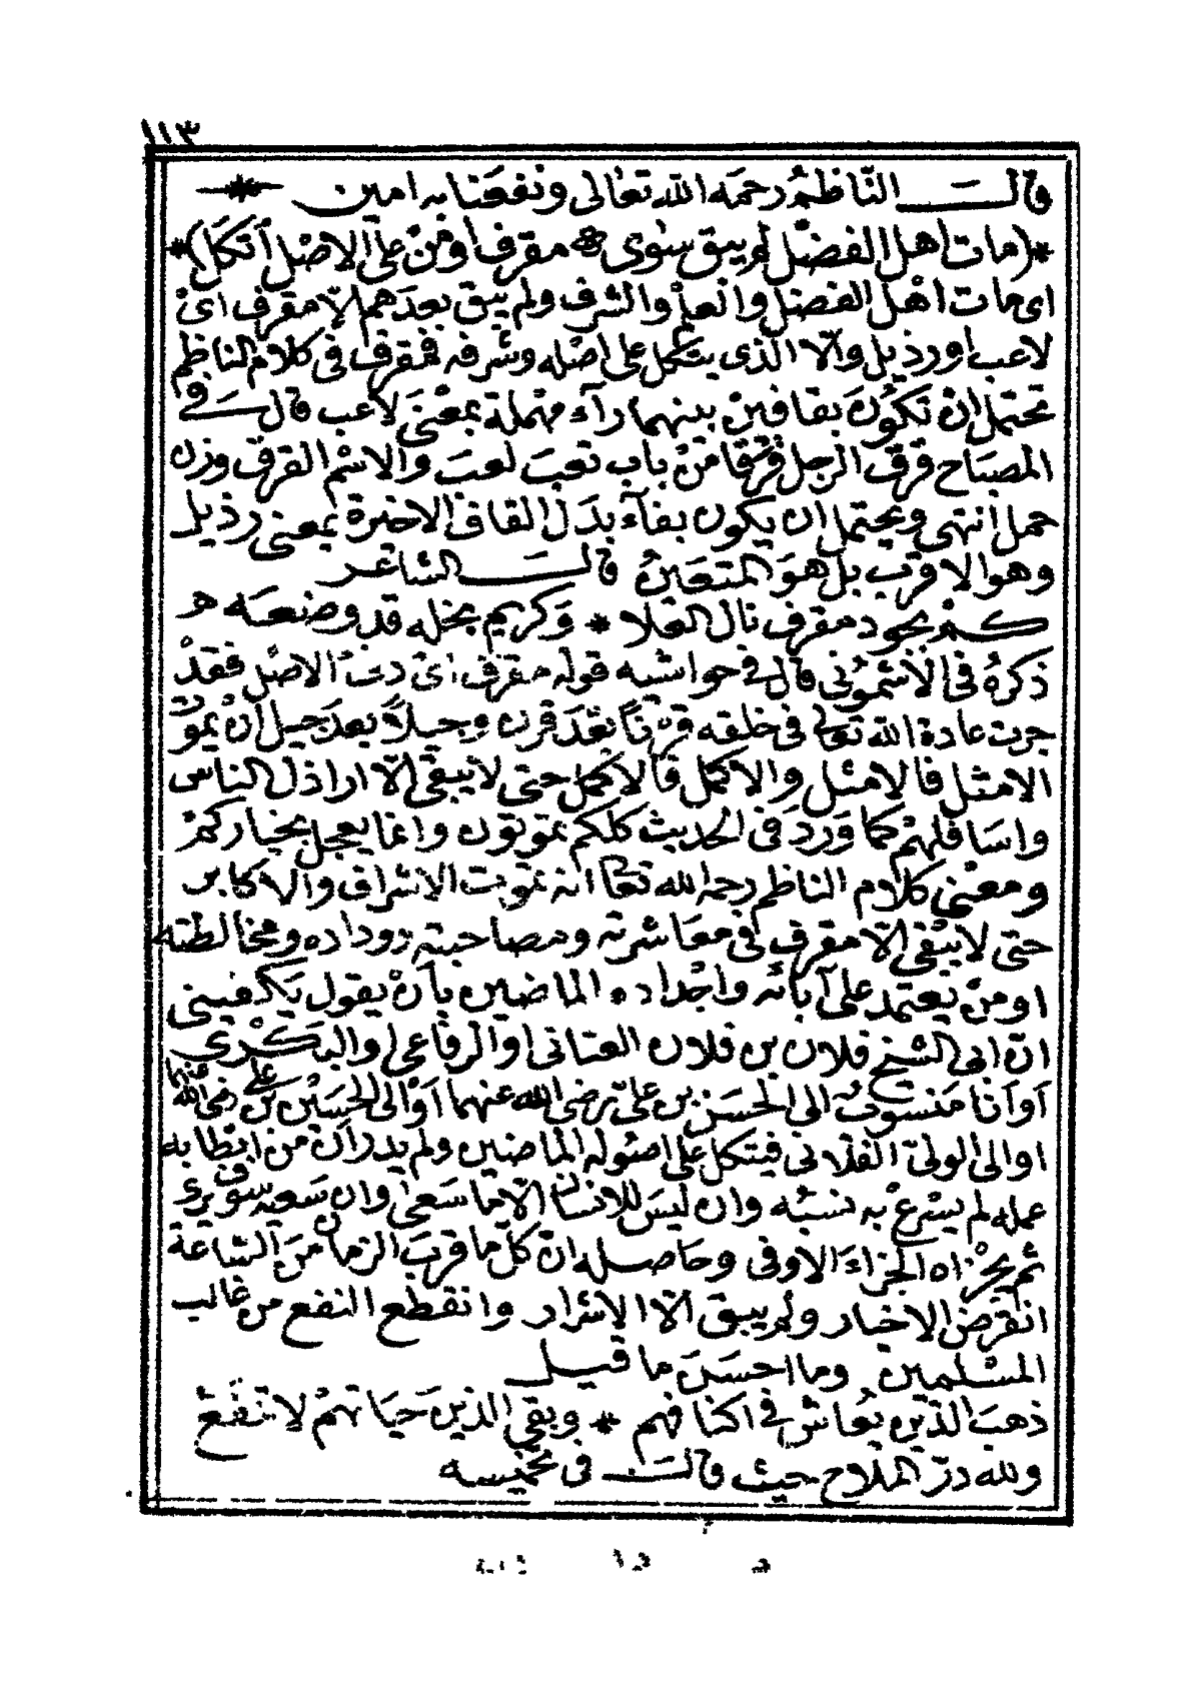 ١١٣
قال الناظم رحمه الله تعالى ونفعنا به امين
*(مات اهل الفضل لم يبق سوى ۞ مقرف او من على الاصل اتكل)*
اى مات اهل الفضل والعلم والشرف ولم يبق بعدهم الا مقرف اى
لاعب او رذيل والا الذى يتكل على اصله وشرفه فمقرف فى كلام الناظم
تحتمل ان تكون بقافين بينهما رآء مهملة بمعنى لاعب قال فى
المصباح قرق الرجل قرقا من باب تعب لعب والاسم القرق وزن
حمل انتهى ويحتمل ان يكون بفآء بدل القاف الاخيرة بمعنى رذيل
وهو الاقرب بل هو المتعين قال الشاعر
كم بجود مقرف نال العلا * وكريم بخله قد وضعه ه
ذكره فى الاشمونى قال فى حواشيه قوله مقرف اى دنئ الاصل فقد
جرت عادة الله تعالى فى خلقه قرنا بعد قرن وجيلا بعد جيل ان يموت
الامثل فالامثل والاكمل فالاكمل حتى لا يبقى الا اراذل الناس
واسافلهم كما ورد فى الحديث كلكم تموتون وانما يعجل بخياركم
ومعنى كلام الناظم رحمه الله تعالى انه تموت الاشراف والاكابر
حتى لا يبقى الا مقرف فى معاشرته ومصاحبته ووداده ومخالطته
او من يعتمد على آبائه واجداده الماضين بأن يقول يكفينى
ان ابى الشيخ فلان بن فلان العنانى او الرفاعى او البكرى
او أنا منسوب الى الحسن بن على رضى الله عنهما او الى الحسين بن على رضى الله عنهما
او الى الولى الفلانى فيتكل على اصوله الماضين ولم يدر أن من ابطا به
عمله لم يسرع به نسبه وان ليس للانسان الا ما سعى وان سعيه سوف يرى
ثم يجزاه الجزاء الاوفى وحاصله ان كل ما قرب الزمان من الساعة
انقرض الاخيار ولم يبق الا الاشرار وانقطع النفع من غالب
المسلمين وما احسن ما قيل
ذهب الذين يعاش فى اكنافهم * وبقى الذين حياتهم لا تنفع
ولله در الملاح حيث قال فى تخميسه